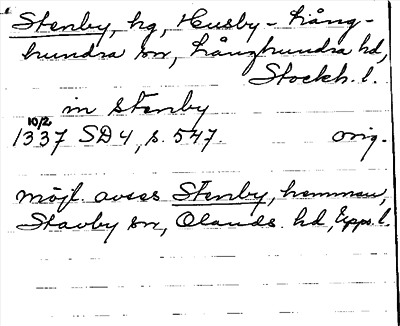 Stenby, hg, Husby-Lång-
hundra sn, Långhundra hd,
Stockh. l.
in stenby
10/2
1337 SD 4, s. 547. orig.
möjl. avses Stenby, hemman,
Stavby sn, Olands hd, Upps. l.